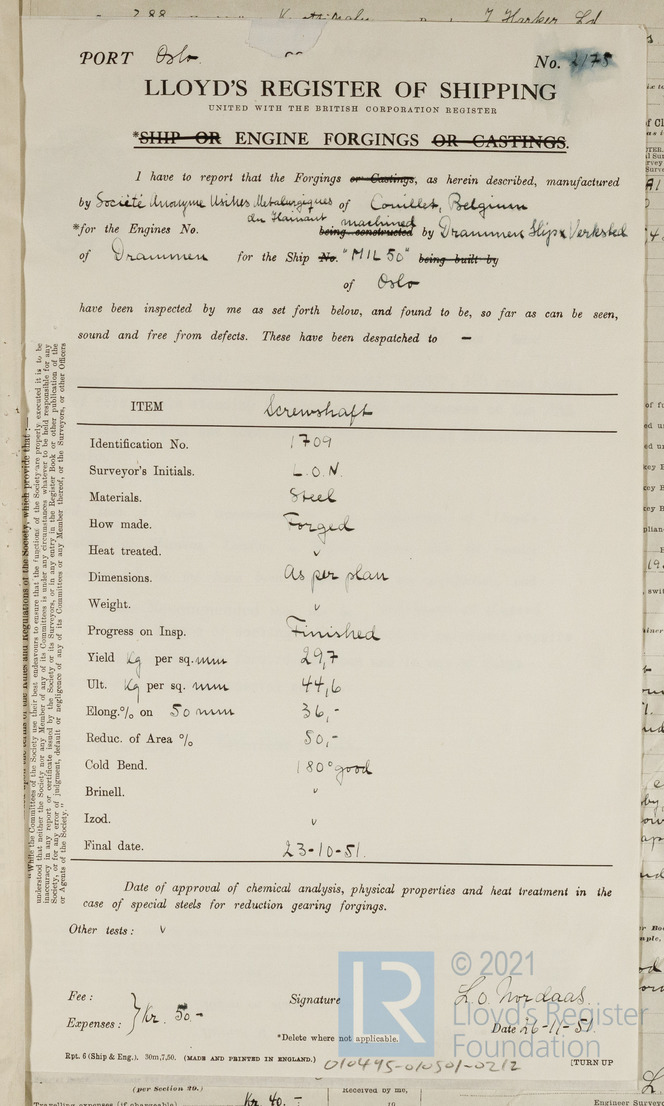 PORT Oslo No. 2175
LLOYD'S REGISTER OF SHIPPING
UNITED WITH THE BRITISH CORPORATION REGISTER
*SHIP OR ENGINE FORGINGS OR CASTINGS.
I have to report that the Forgings or Castings, as herein described, manufactured
by Société Anonyme Usines Metalurgiques of Couillet, Belgium
du Hainaut machined
*for the Engines No. being constructed by Drammen Slip & Verksted
of Drammen for the Ship No. "MIL 50" being built by
of Oslo
have been inspected by me as set forth below, and found to be, so far as can be seen,
sound and free from defects. These have been despatched to —
ITEM Screwshaft
Identification No. 1709
Surveyor's Initials. L.O.N.
Materials. Steel
How made. Forged
Heat treated. v
Dimensions. As per plan
Weight. v
Progress on Insp. Finished
Yield Kg per sq. mm 29,7
Ult. Kg per sq. mm 44,6
Elong.% on 50 mm 36,-
Reduc. of Area % 50,-
Cold Bend. 180° good
Brinell. v
Izod. v
Final date. 23-10-51.
Date of approval of chemical analysis, physical properties and heat treatment in the
case of special steels for reduction gearing forgings.
Other tests: v
Fee:
Expenses: } Kr. 50.-
Signature L. O. Nordaas.
Date 26-11-51.
*Delete where not applicable.
Rpt. 6 (Ship & Eng.). 30m,7,50. (MADE AND PRINTED IN ENGLAND.)
[TURN UP
010495-010501-0212
"While the Committees of the Society use their best endeavours to ensure that the functions of the Society are properly executed it is to be
understood that neither the Society nor any Member of any of its Committees is under any circumstances whatever to be held responsible for any
inaccuracy in any report or certificate issued by the Society or its Surveyors, or in any entry in the Register Book or other publication of the
Society, or for any error of judgment, default or negligence of any of its Committees or any Member thereof, or the Surveyors, or other Officers
or Agents of the Society."
LR
© 2021
Lloyd's Register
Foundation
(per Section 29.)
Travelling expenses (if chargeable) Kr 40.-
Received by me,
Engineer Surveyor